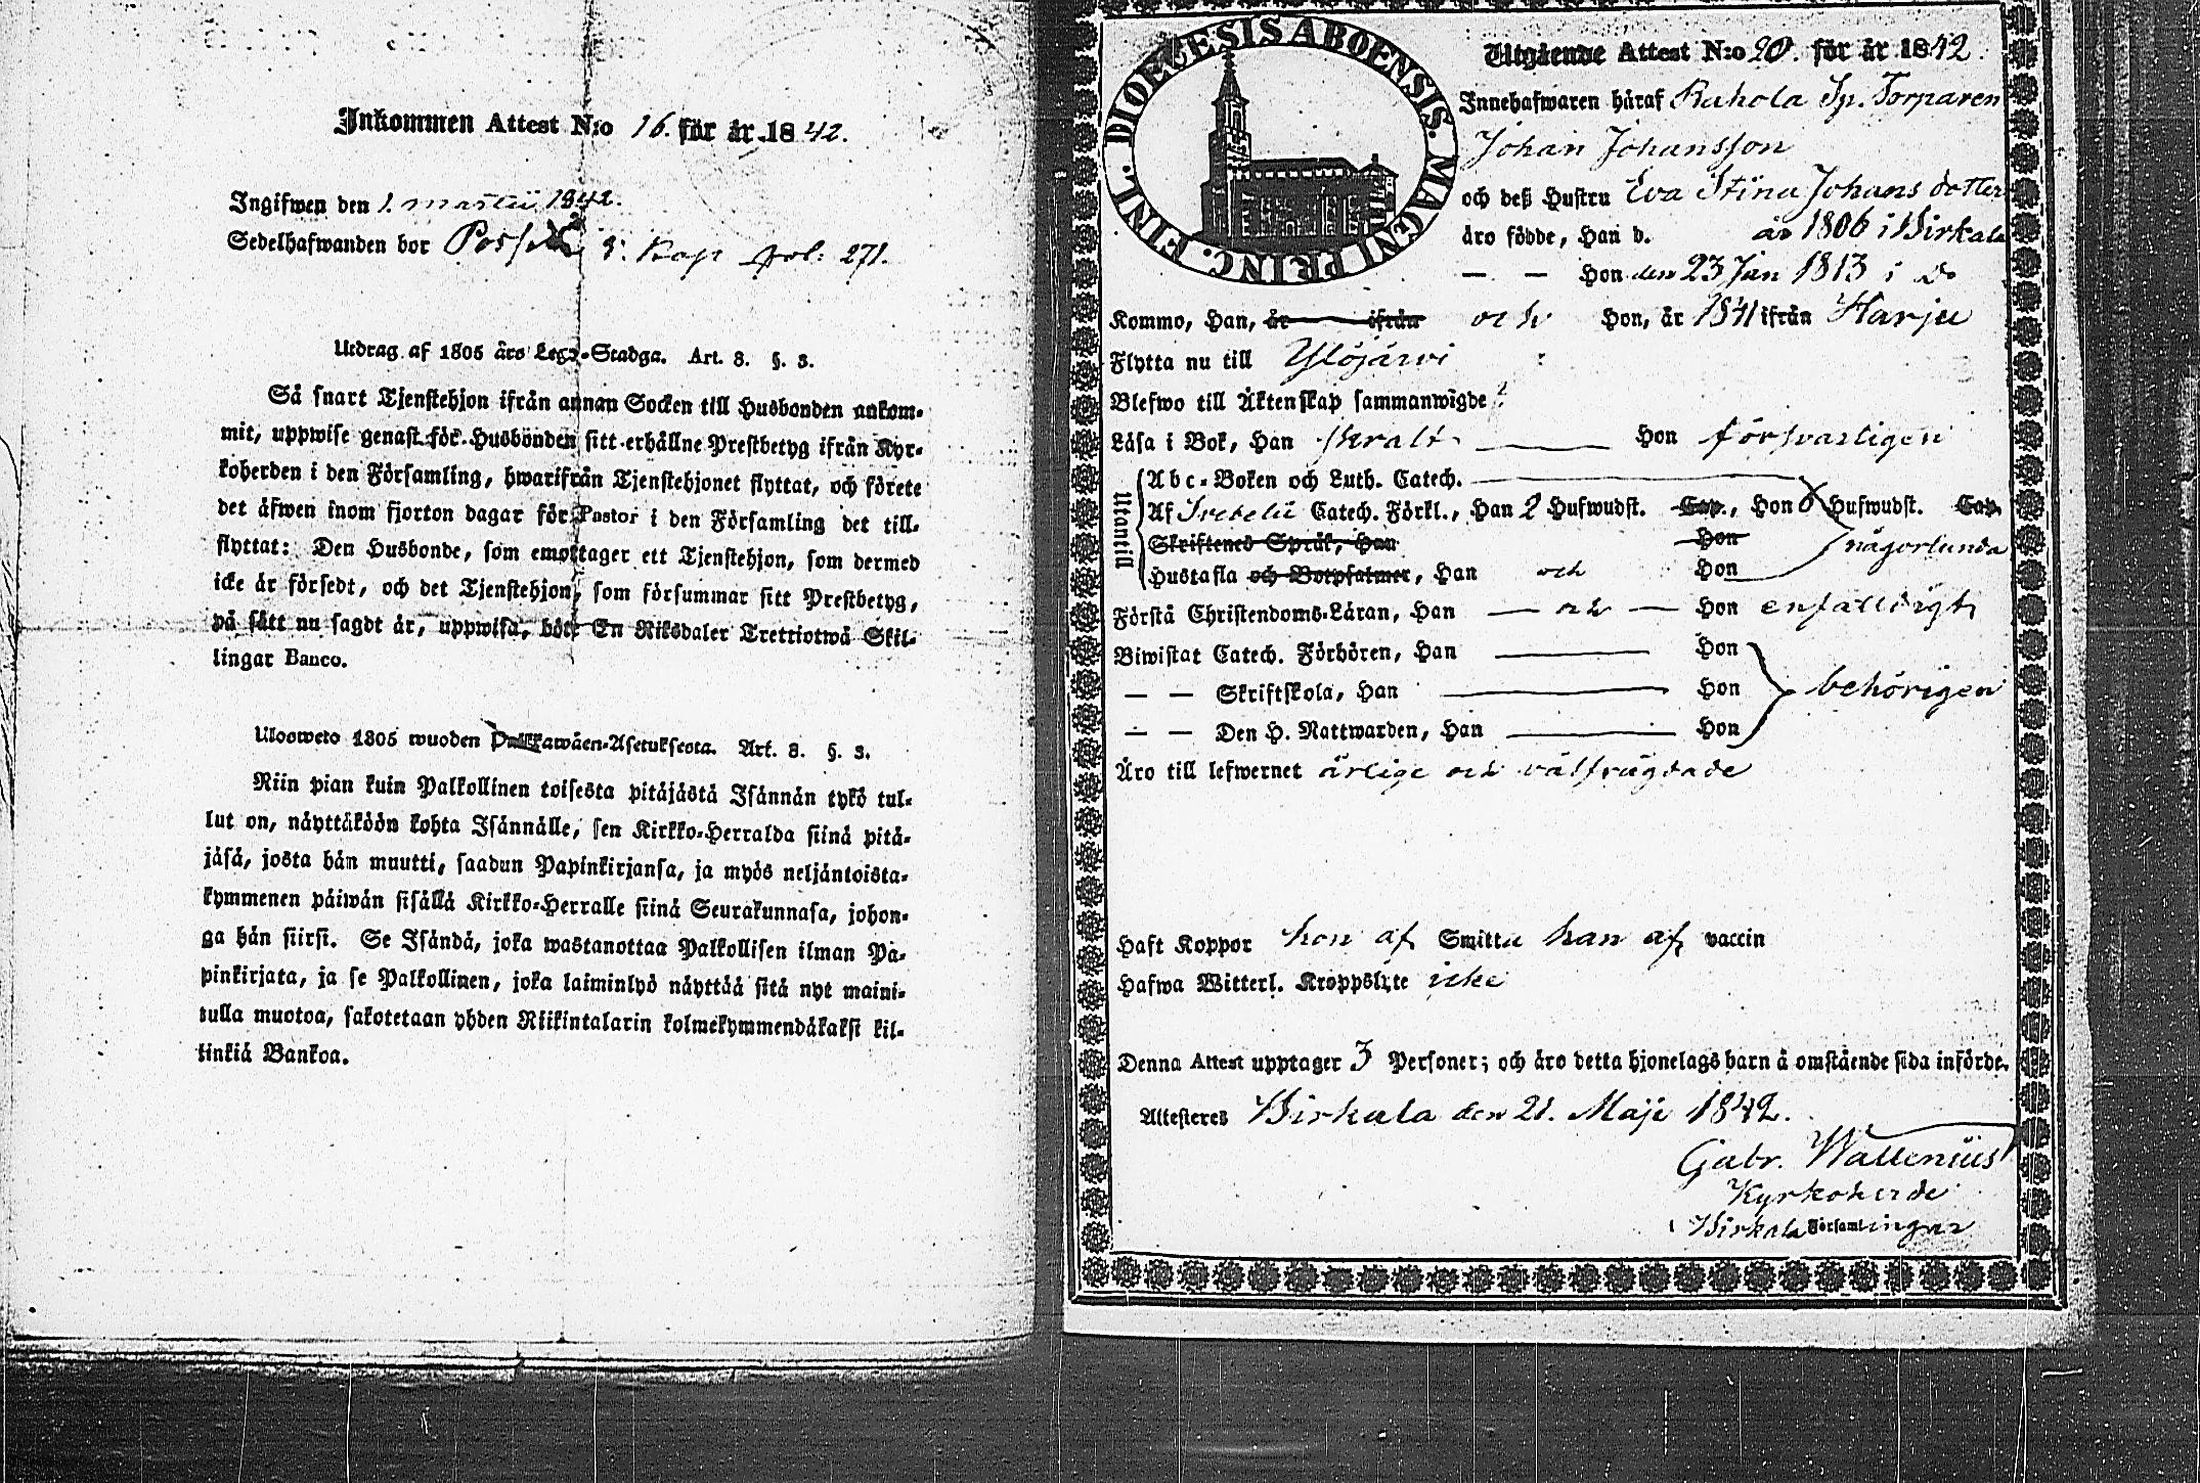 Inkommen Attest N:o 16. för år 1842.
Ingifwen den 1. martii 1842.
Sedelhafwanden bor fol: 271.
Utdrag af 1805 års Lego-Stadga. Art. 8. §. 3.
Så snart Tjenstehjon ifrån annan Socken till Husbonden ankom-
mit, uppwise genast för Husbonden sitt erhållne Prestbetyg ifrån Kyr-
koherden i den Församling, hwarifrån Tjenstehjonet flyttat, och förete
det äfwen inom fjorton dagar för Pastor i den Församling det till-
flyttat: Den Husbonde, som emottager ett Tjenstehjon, som dermed
icke är försedt, och det Tjenstehjon, som försummar sitt Prestbetyg,
på sätt nu sagdt är, uppwisa, böte En Riksdaler Trettiotwå Skil-
lingar Banco.
Ulosweto 1805 wuoden Palkkawäen-Asetuksesta. Art. 8. §. 3.
Niin pian kuin Palkollinen toisesta pitäjästä Isännän tykö tul-
lut on, näyttäköön kohta Isännälle, sen Kirkko-Herralda siinä pitä-
jäsä, josta hän muutti, saadun Papinkirjansa, ja myös neljäntoista-
kymmenen päiwän sisällä Kirkko-Herralle siinä Seurakunnasa, johon-
ga hän siirsi. Se Isändä, joka wastanottaa Palkollisen ilman Pa-
pinkirjata, ja se Palkollinen, joka laiminlyö näyttää sitä nyt maini-
tulla muotoa, sakotetaan yhden Riikintalarin kolmekymmendäkaksi kil-
linkiä Bankoa.
DIOECESIS ABOENSIS. MAGNI PRINC. FINL.
Utgående Attest N:o 20. för år 1842.
Innehafwaren häraf Ruhola Sp. Torparen
Johan Johansson
och deß Hustru Eva Stina Johans dotter
äro födde, Han d. år 1806 i Birkala
— — Hon den 23 Jan 1813 i Do
Kommo, Han, år ifrån och Hon, år 1841 ifrån Harju
Flytta nu till Ylöjärvi
Blefwo till Äktenskap sammanwigde
Läsa i Bok, Han svalt Hon försvarligen
Utantill
Abc-Boken och Luth. Catech.
Af Svebelii Catech. Förkl., Han 2 Hufwudst. Cap., Hon 6 Hufwudst. Cap.
Skriftenes Språk, Han Hon någorlunda
Hustafla och Botpsalmer, Han och Hon
Förstå Christendoms-Läran, Han — och — Hon enfaldigt
Biwistat Catech. Förhören, Han Hon
— — Skriftskola, Han Hon behörigen
— — Den H. Nattwarden, Han Hon
Äro till lefwernet ärlige och välfrägdade
Haft Koppor hon af Smitta han af vaccin
Hafwa Witterl. Kroppslyte icke
Denna Attest upptager 3 Personer; och äro detta hjonelags barn å omstående sida införde.
Attesteres Birkala den 21. Maji 1842.
Gabr. Wallenius
Kyrkoherde
i Birkala Församlingar